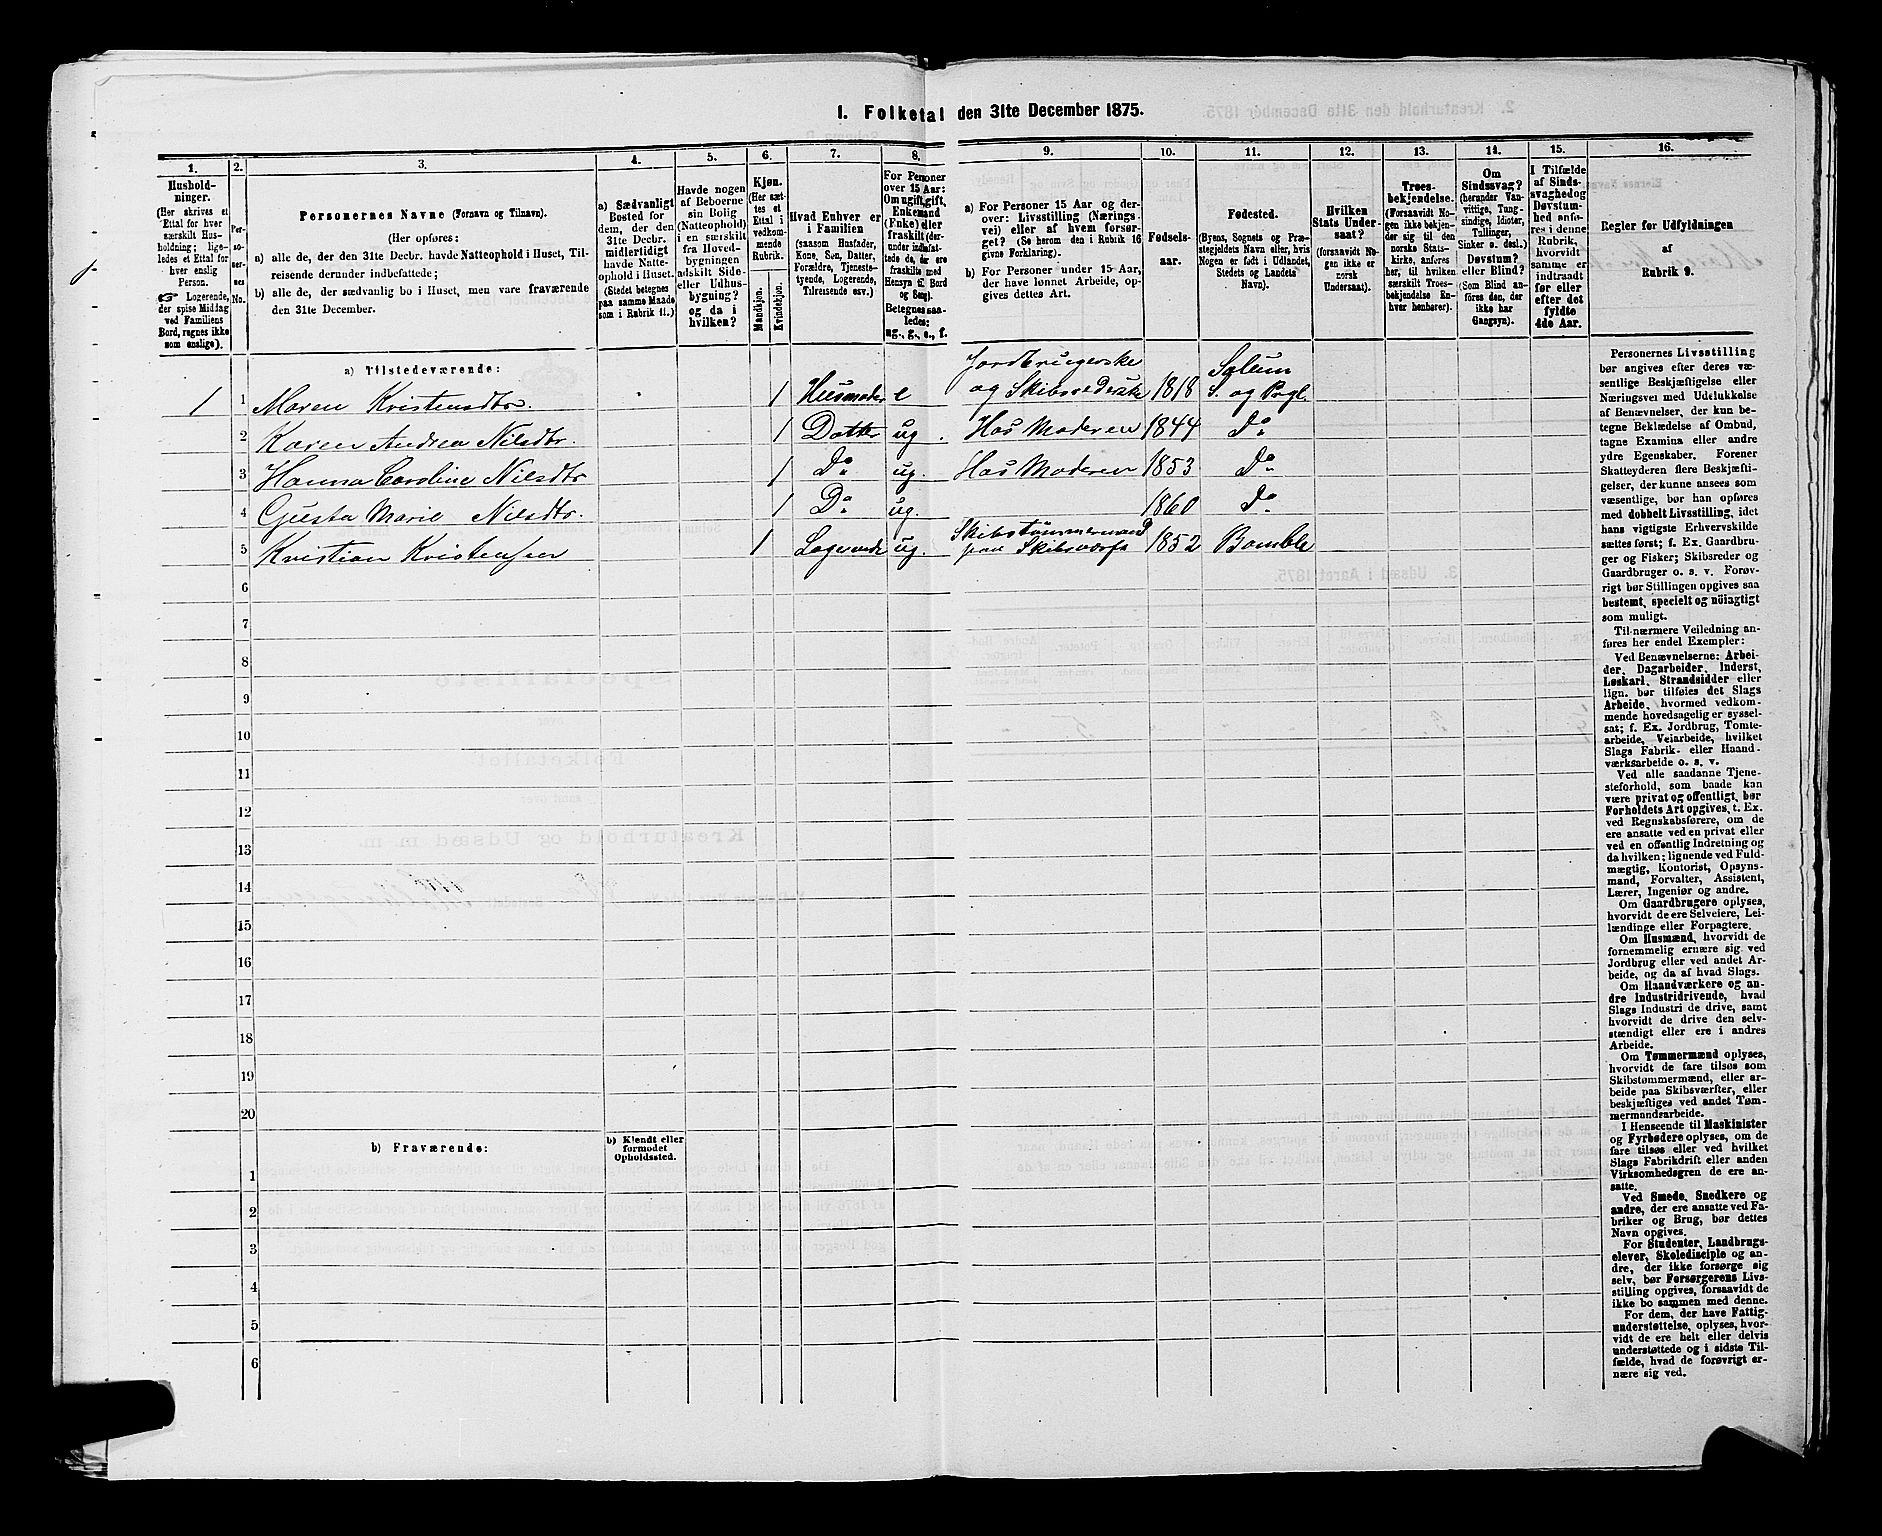 I. Folketal den 31te December 1875.
1.
Hushold-
ninger.
(Her skrives et
Ettal for hver
særskilt Hus-
holdning; lige-
ledes et Ettal for
hver enslig
Person.
☞ Logerende,
der spise Middag
ved Familiens
Bord, regnes ikke
som enslige).
2.
Per-
so-
ner-
nes
No.
3.
Personernes Navne (Fornavn og Tilnavn).
(Her opføres:
a) alle de, der den 31te Decbr. havde Natteophold i Huset, Til-
reisende derunder indbefattede;
b) alle de, der sædvanlig bo i Huset, men vare fraværende
den 31te December.
4.
a) Sædvanligt
Bosted for
dem, der den
31te Decbr.
midlertidigt
havde Natte-
ophold i Huset.
(Stedet betegnes
paa samme Maade
som i Rubrik 11.)
5.
Havde nogen
af Beboerne
sin Bolig
(Natteophold)
i en særskilt
fra Hoved-
bygningen
adskilt Side-
eller Udhus-
bygning?
og da i
hvilken?
6.
Kjøn.
(Her sæt-
tes et
Ettal i
vedkom-
mende
Rubrik.
Mandkjøn.
Kvindekjøn.
7.
Hvad Enhver er
i Familien
(saasom Husfader,
Kone, Søn, Datter,
Forældre, Tjeneste-
tyende, Logerende,
Tilreisende osv.)
8.
For Personer
over 15 Aar:
Om ugift, gift,
Enkemand
(Enke) eller
fraskilt (der-
under indbefat-
tede de, der ere
fraskilte med
Hensyn til Bord
og Seng).
Betegnes saa-
ledes:
ug., g., e., f.
9.
a) For Personer 15 Aar og der-
over: Livsstilling (Nærings-
vei) eller af hvem forsør-
get? (Se herom den i Rubrik 16
givne Forklaring).
b) For Personer under 15 Aar,
der have lønnet Arbeide, op-
gives dettes Art.
10.
Fødsels-
aar.
11.
Fødested.
(Byens, Sognets og Præ-
stegjeldets Navn eller, hvis
Nogen er født i Udlandet,
Stedets og Landets
Navn).
12.
Hvilken
Stats Under-
saat?
(forsaavidt No-
gen ikke er
norsk
Undersaat).
13.
Troes-
bekjendelse.
(Forsaavidt No-
gen ikke bekjen-
der sig til den
norske Stats-
kirke, anføres
her, til hvilken
særskilt Troes-
bekjendelse En-
hver henhører).
14.
Om
Sindssvag?
(herunder Van-
vittige, Tung-
sindige, Idioter,
Tullinger,
Sinker o. desl.)
Døvstum?
eller Blind?
(Som Blind an-
føres den, der
ikke har
Gangsyn).
15.
I Tilfælde
af Sinds-
svaghed og
Døvstum-
hed anfø-
res i denne
Rubrik,
hvorvidt
samme er
indtraadt
før eller
efter det
fyldte
4de Aar.
16.
Regler for Udfyldningen
af
Rubrik 9.
a) Tilstedeværende:
Jordbrugerske Sslum
1 1 Maren Kristensdtr. 1 Husmoder e og Skibsrederske 1818 S. og Prgl.
2 Karen Andrea Nilsdtr. 1 Datter ug. Hos Moderen 1844 Do
3 Hanna Caroline Nilsdtr 1 Do ug. Hos Moderen 1853 Do
4 Gusta Marie Nilsdtr. 1 Do ug. 1860 Do
5 Kristian Kristensen 1 Logerende ug. Skibstømmermand paa Skibsværft 1852 Bamble
6
7
8
9
10
11
12
13
14
15
16
17
18
19
20
b) Fraværende:
b) Kjendt eller
formodet
Opholdssted.
1
2
3
4
5
6
Personernes Livsstilling
bør angives efter deres væ-
sentlige Beskjæftigelse eller
Næringsvei med Udelukkelse
af Benævnelser, der kun be-
tegne Beklædelse af Ombud,
tagne Examina eller andre
ydre Egenskaber. Forener
Skatteyderen flere Beskjæfti-
gelser, der kunne ansees som
væsentlige, bør han opføres
med dobbelt Livsstilling, idet
hans vigtigste Erhvervskilde
sættes først; f. Ex. Gaardbru-
ger og Fisker; Skibsreder og
Gaardbruger o. s. v. Forøv-
rigt bør Stillingen opgives saa
bestemt, specielt og nøiagtigt
som muligt.
Til nærmere Veiledning an-
føres her endel Exempler:
Ved Benævnelserne: Arbei-
der, Dagarbeider, Inderst,
Løskarl, Strandsidder eller
lign. bør tilføies det Slags
Arbeide, hvormed vedkom-
mende hovedsagelig er syssel-
sat; f. Ex. Jordbrug, Tomte-
arbeide, Veiarbeide, hvilket
Slags Fabrik- eller Haand-
værksarbeide o. s. v.
Ved alle saadanne Tjene-
steforhold, som baade kan
være privat og offentligt, bør
Forholdets Art opgives, t. Ex.
ved Regnskabsførere, om de
ere ansatte ved en privat eller
ved en offentlig Indretning og
da hvilken; lignende ved Fuld-
mægtig, Kontorist, Opsyns-
mand, Forvalter, Assistent,
Lærer, Ingeniør og andre.
Om Gaardbrugere oplyses,
hvorvidt de ere Selveiere, Lei-
lændinge eller Forpagtere.
Om Husmænd, hvorvidt de
fornemmelig ernære sig ved
Jordbrug eller ved andet Ar-
beide, og da af hvad Slags.
Om Haandværkere og an-
dre Industridrivende, hvad
Slags Industri de drive, samt
hvorvidt de drive den selv-
stændigt eller ere i andres
Arbeide.
Om Tømmermænd oplyses,
hvorvidt de fare tilsøs som
Skibstømmermænd, eller ar-
beide paa Skibsværfter, eller
beskjæftiges ved andet Tøm-
mermandsarbeide.
I Henseende til Maskinister
og Fyrbødere oplyses, om de
fare tilsøs eller ved hvilket
Slags Fabrikdrift eller anden
Virksomhedsgren de ere an-
satte.
Ved Smede, Snedkere og
andre, der ere ansatte ved Fa-
briker og Brug, bør dettes
Navn opgives.
For Studenter, Landbrugs-
elever, Skoledisciple og an-
dre, der ikke forsørge sig
selv, bør Forsørgerens Livs-
stilling opgives, forsaavidt de
ikke bo sammen med denne.
For dem, der have Fattig-
understøttelse, oplyses, hvor-
vidt de ere helt eller delvis
understøttede og i sidste Til-
fælde, hvad de forøvrigt er-
nære sig ved.